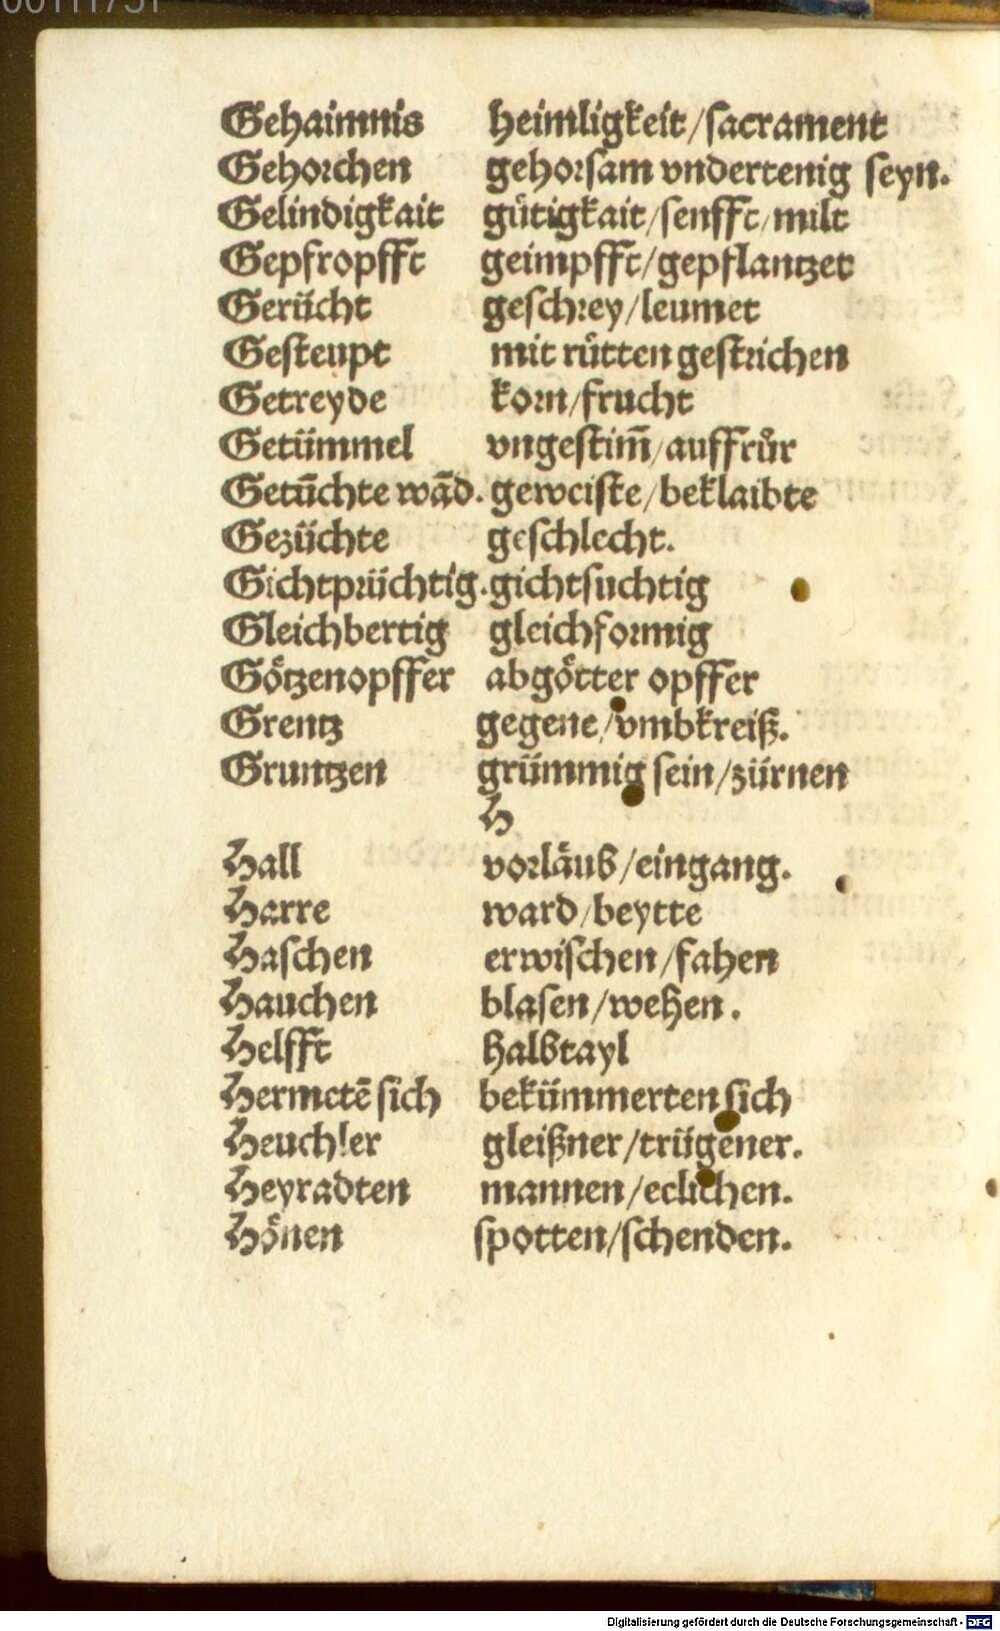 00111731
Gehaimnis heimligkeit/sacrament
Gehorchen gehorsam vndertenig seyn.
Gelindigkait gütigkait/senfft/milt
Gepfropfft geimpfft/gepflantzet
Gerücht geschrey/leumet
Gesteupt mit rütten gestrichen
Getreyde korn/frucht
Getümmel vngestim̄/auffrůr
Getūchte wād. geweiste/beklaibte
Gezüchte geschlecht.
Gichtprüchtig. gichtsuchtig
Gleichbertig gleichformig
Götzenopffer abgötter opffer
Grentz gegene/vmbkreiß.
Gruntzen grümmig sein/zürnen
H
Hall vorläub/eingang.
Harre ward/beytte
Haschen erwischen/fahen
Hauchen blasen/wehen.
Helfft halbtayl
Hermetē sich bekümmerten sich
Heuchler gleißner/trügener.
Heyradten mannen/eelichen.
Hönen spotten/schenden.
Digitalisierung gefördert durch die Deutsche Forschungsgemeinschaft - DFG